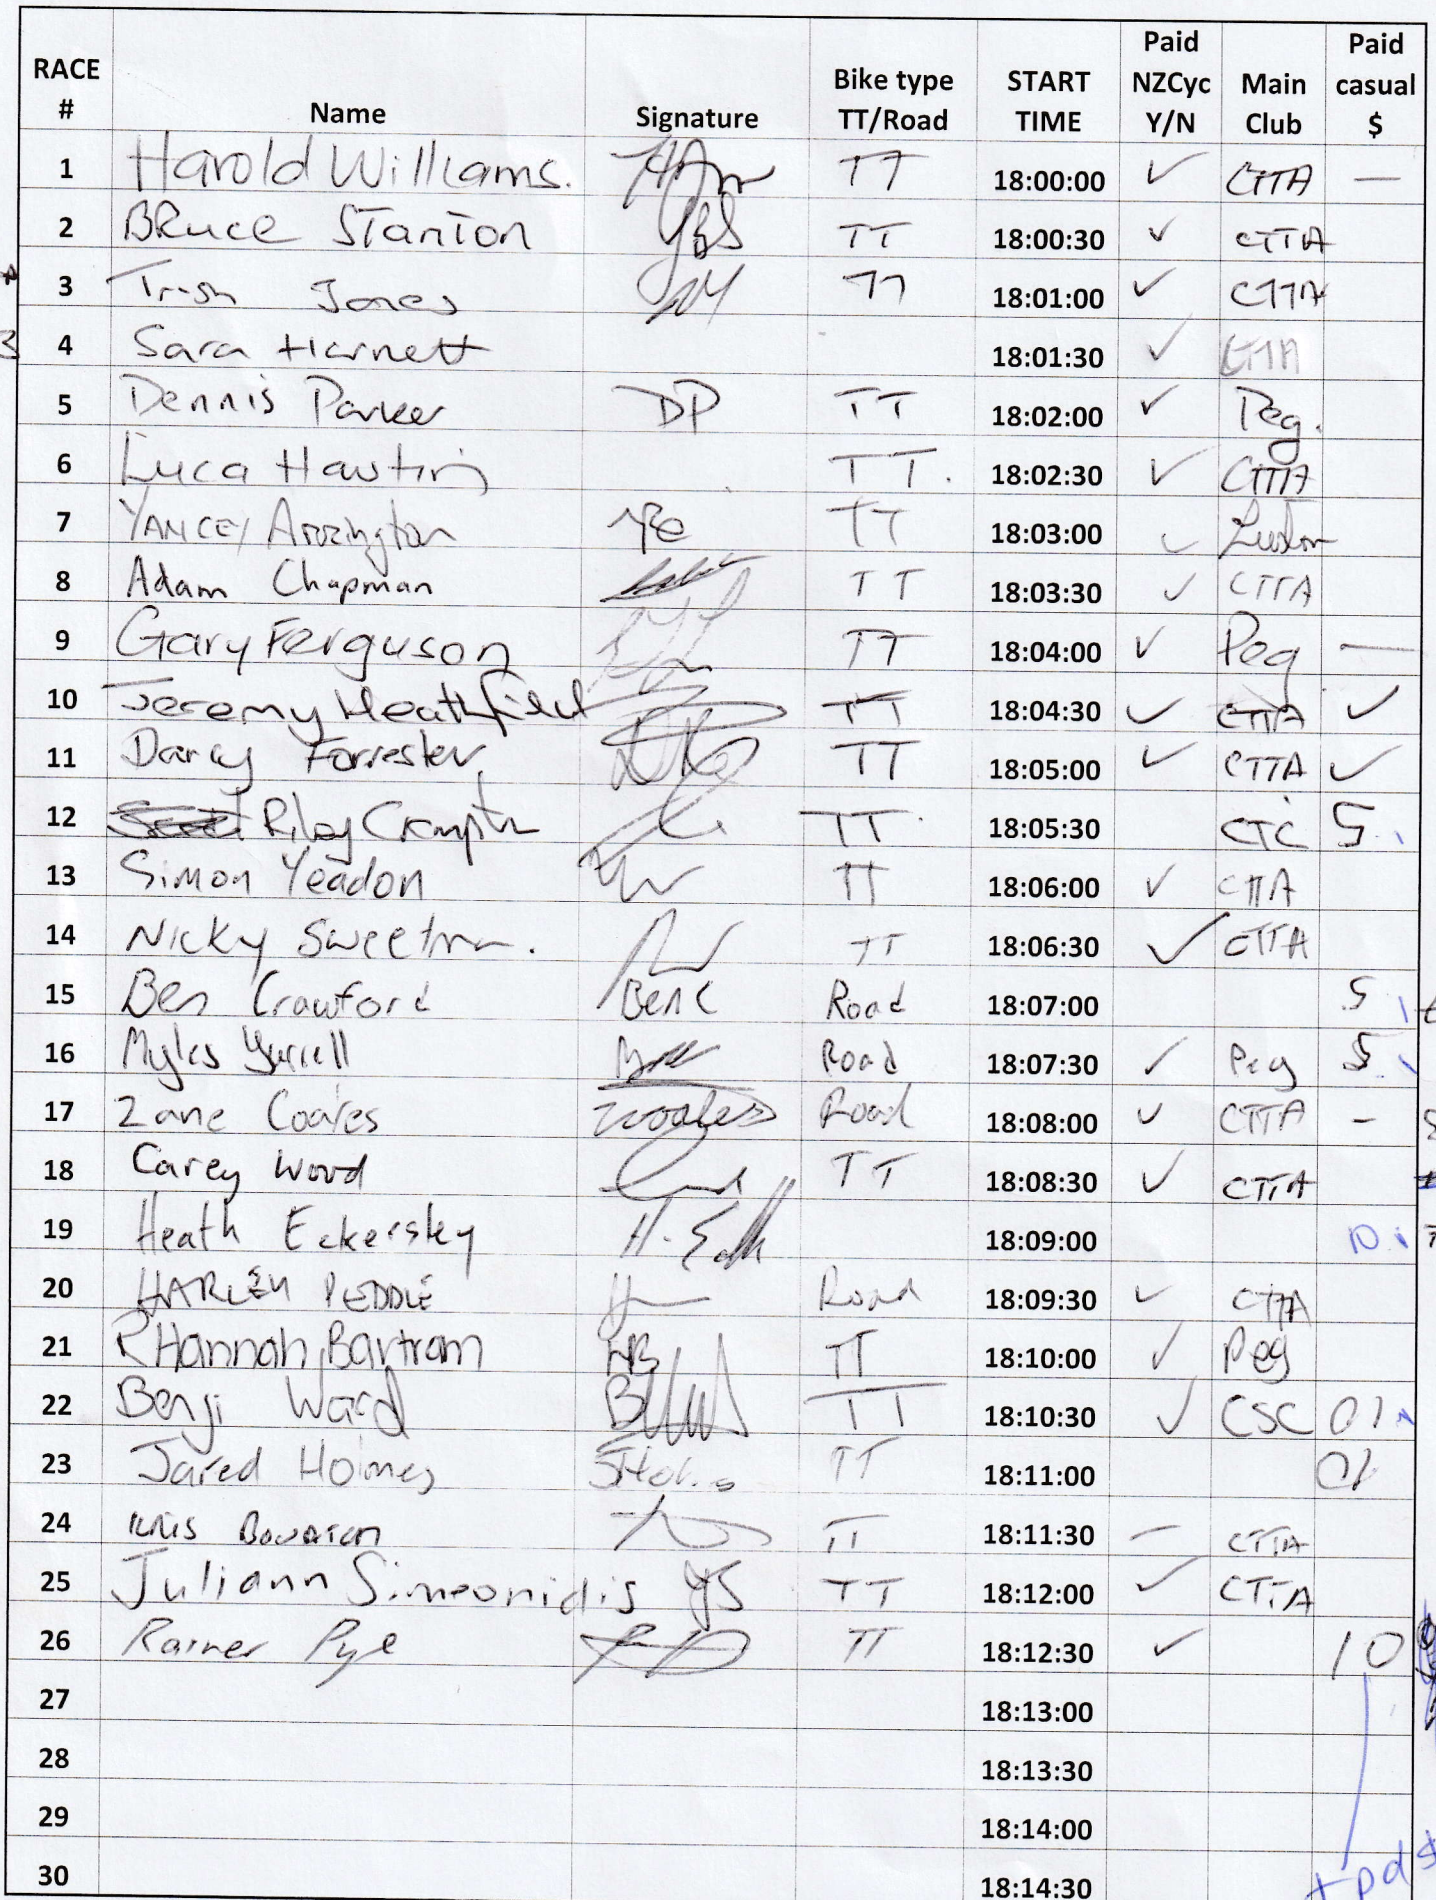 RACE # Name Signature Bike type TT/Road START TIME Paid NZCyc Y/N Main Club Paid casual $
1 Harold Williams. TT 18:00:00 ✓ CTTA —
2 Bruce Stanton TT 18:00:30 ✓ CTTA
3 Trish Jones TT 18:01:00 ✓ CTTA
4 Sara Harnett 18:01:30 ✓ CTTA
5 Dennis Parker DP TT 18:02:00 ✓ Peg.
6 Luca TT. 18:02:30 ✓ CTTA
7 YANCEY Arrington TT 18:03:00 ✓
8 Adam Chapman TT 18:03:30 ✓ CTTA
9 Gary Ferguson TT 18:04:00 ✓ Peg —
10 Jeremy Heathfield TT 18:04:30 ✓ CTTA ✓
11 Darcy Forrester TT 18:05:00 ✓ CTTA ✓
12 Riley Crampton TT. 18:05:30 CTC 5
13 Simon Yeadon TT 18:06:00 ✓ CTTA
14 Nicky TT 18:06:30 ✓ CTTA
15 Ben Crawford Ben C Road 18:07:00 5
16 Myles Road 18:07:30 ✓ Peg 5
17 Zane Coates Road 18:08:00 ✓ CTTA -
18 Carey Wood TT 18:08:30 ✓ CTTA
19 Heath Eckersley 18:09:00 10
20 HARLEY PEDDLE Road 18:09:30 ✓ CTTA
21 Hannah Bartram HB TT 18:10:00 ✓ Peg
22 Benji Ward TT 18:10:30 ✓ CSC 01
23 Jared Holmes TT 18:11:00
24 TT 18:11:30 — CTTA
25 Juliann Simeonidis JS TT 18:12:00 ✓ CTTA
26 Rainer Pyle TT 18:12:30 ✓ 10
27 18:13:00
28 18:13:30
29 18:14:00
30 18:14:30
+pd $